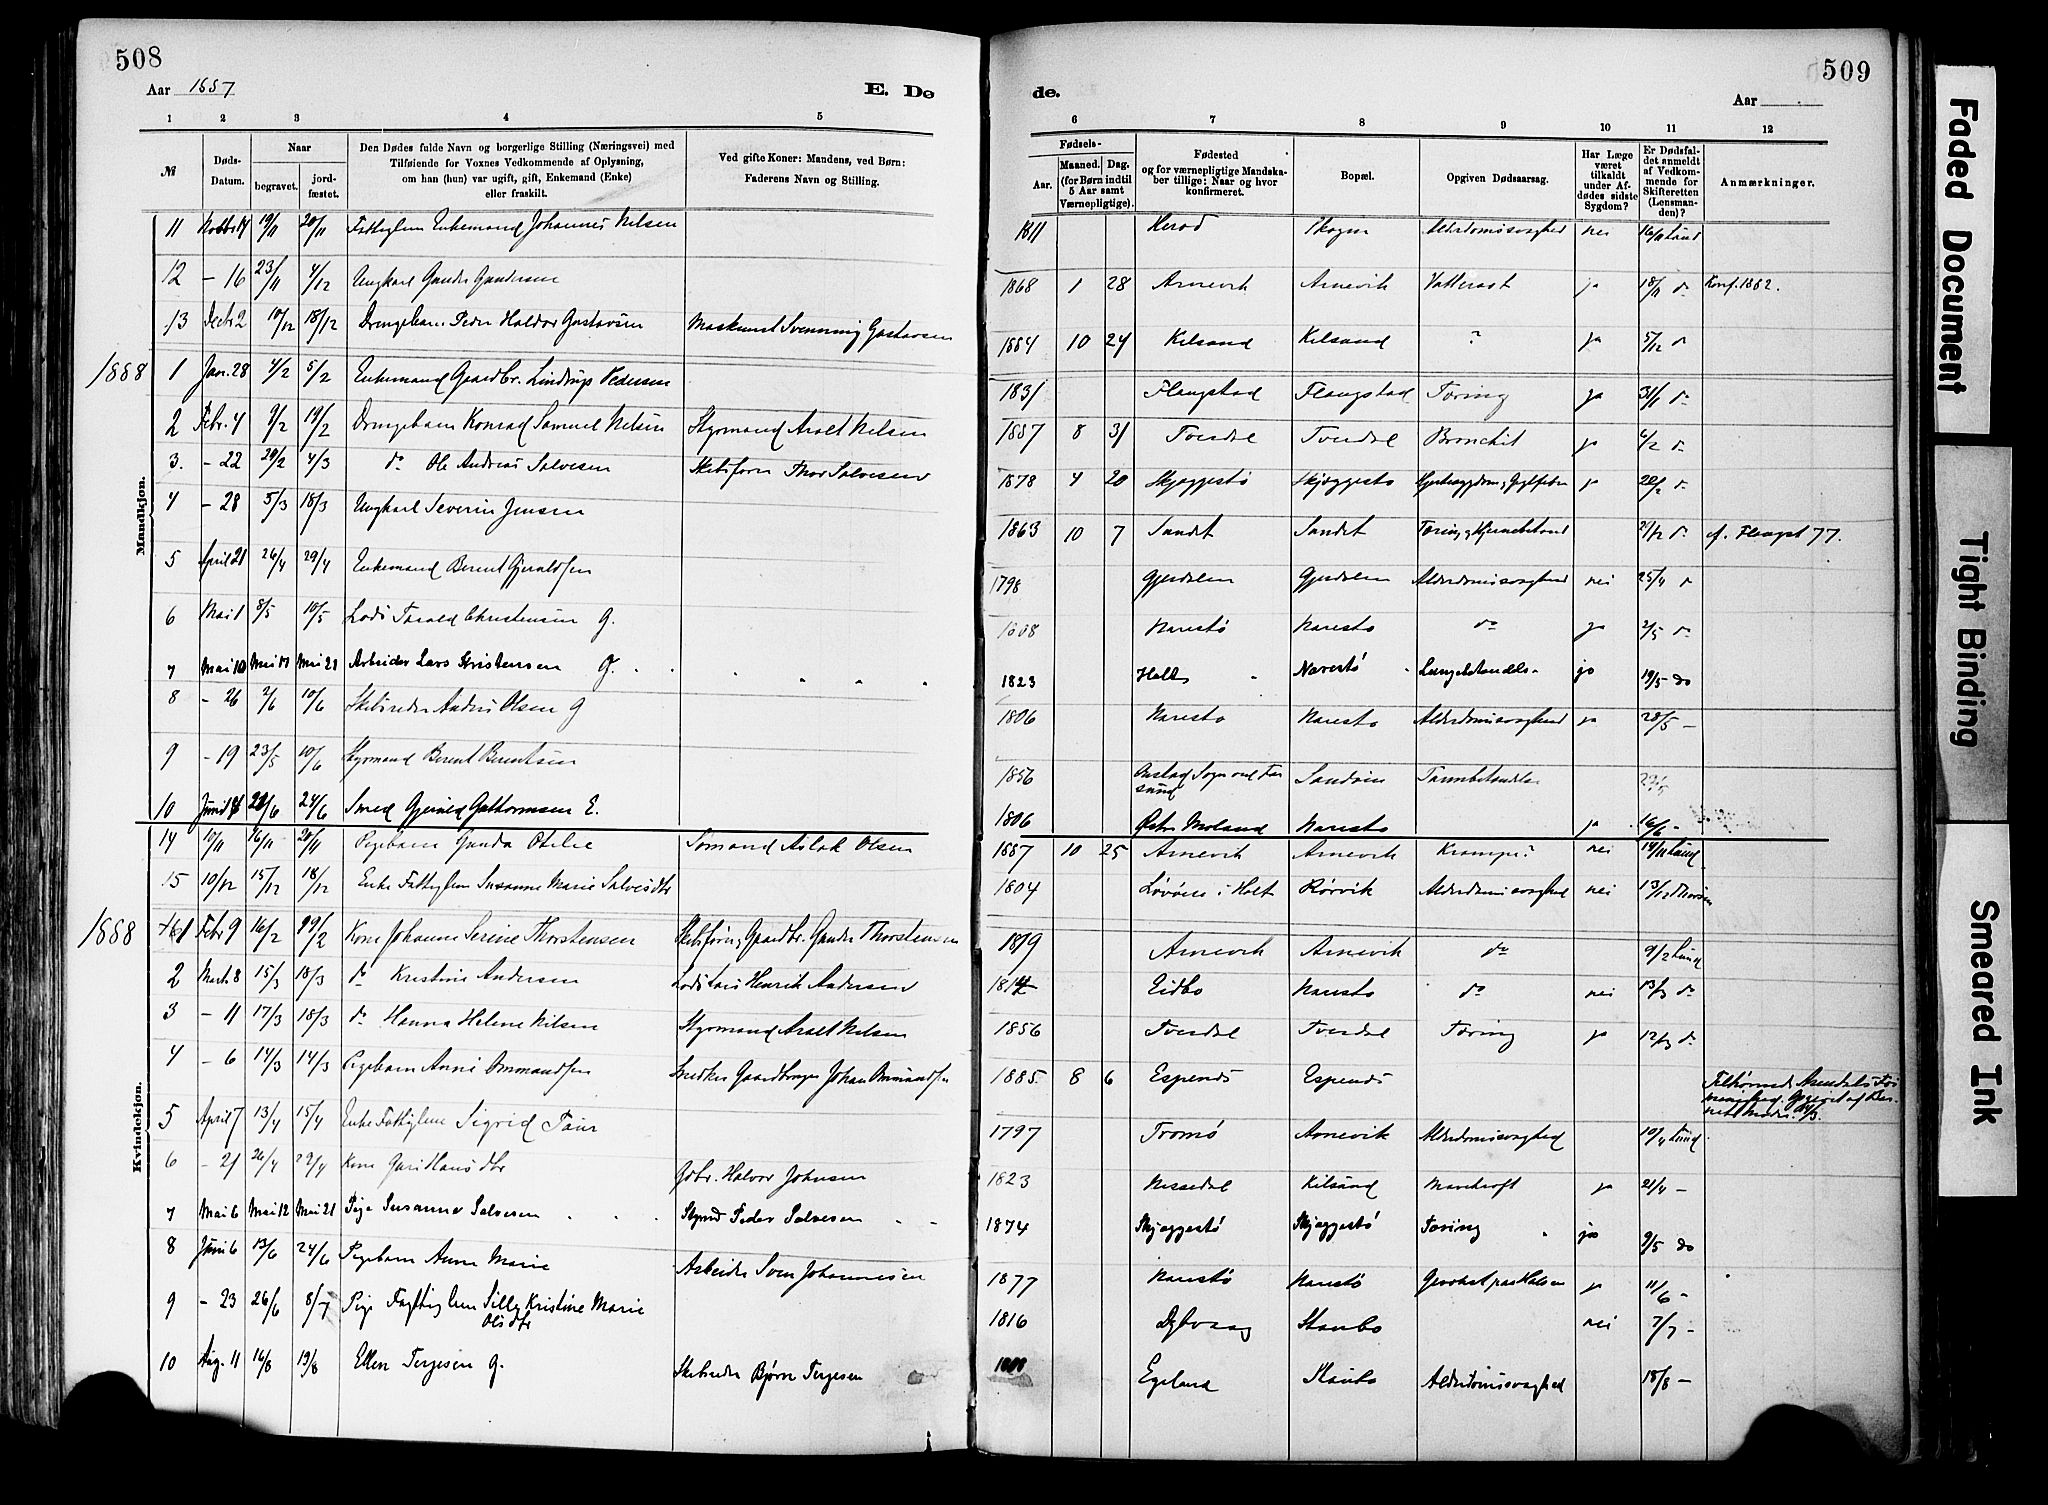 508
Aar 1887
E. Dø
1 2 3 4 5
№
Døds-
Datum.
Naar
begravet.
jord-
fæstet.
Den Dødes fulde Navn og borgerlige Stilling (Næringsvei) med
Tilføiende for Voxnes Vedkommende af Oplysning,
om han (hun) var ugift, gift, Enkemand (Enke)
eller fraskilt.
Ved gifte Koner: Mandens, ved Børn:
Faderens Navn og Stilling.
Mandkjøn.
11 19/11 20/11 Enkemand Johannes Nilsen
12 - 16 23/11 4/12 Ungkarl Gunder Gundersen
13 Decbr 2 10/12 18/12 Drengebarn Peder Haldor Gustavsen Maskinist Svenning Gustavsen
1888 1 Jan. 28 4/2 5/2 Enkemand Gaardbr. Lindrup Pedersen
2 Febr. 4 9/2 19/2 Drengebarn Konrad Samuel Nilsen Styrmand Aralt Nilsen
3. - 22 29/2 4/3 do Ole Andreas Salvesen Skibsfører Thor Salvesen
4 - 28 5/3 18/3 Ungkarl Severin Jensen
5 April 21 26/4 29/4 Enkemand Berent Gjeruldsen
6 Mai 1 8/5 10/5 Lods Tarald Christensen G.
7 Mai 10 Mai 17 Mai 21 Arbeider Lars Kristensen G.
8 - 26 2/6 10/6 Skibsreder Anders Olsen G
9 - 19 23/5 10/6 Styrmand Berent Berentsen
10 24/6 Smed Gjeruld Guttormsen E.
Kvindekjøn.
14 10/11 16/11 20/11 Pigebarn Gunda Otilie Sømand Aslak Olsen
15 10/12 15/12 18/12 Enke Fattiglem Susanne Marie Salvesdtr
1888 1 Febr 9 16/2 Kone Johanne Serine Thorstensen Skibsfører, Gaardbr. Gunder Thorstensen
2 Marts 8 15/3 18/3 do Kristine Andersen Lods Lars Henrik Andersen
3 - 11 17/3 18/3 do Hanna Helene Nilsen Styrmand Aralt Nilsen
4 - 6 14/3 14/3 Pigebarn Anne Ommundsen Snedker Gaardbruger Johan Ommundsen
5 April 7 13/4 15/4 Enke Fattiglem Sigrid
6 - 21 26/4 29/4 Kone Hansdtr Gdbr. Halvor Johnsen
7 Mai 6 Mai 12 Mai 21 Pige Susanne Salvesen Styrmd Peder Salvesen
8 Juni 6 13/6 24/6 Pigebarn Anne Marie Arbeider Sven Johannesen
9 - 23 26/6 8/7 Pige Fattiglem Silly Kristine Marie
Olsdtr
10 Aug. 11 16/8 19/8 Ellen Terjesen g. Skibsreder Bjørn Terjesen
509
de.
Aar
6 7 8 9 10 11 12
Fødsels-
Aar.
Maaned. Dag.
(for Børn indtil
5 Aar samt
Værnepligtige).
Fødested
og for værnepligtige Mandska-
ber tillige: Naar og hvor
konfirmeret.
Bopæl.
Opgiven Dødsaarsag.
Har Læge
været
tilkaldt
under Af-
dødes sidste
Sygdom?
Er Dødsfal-
det anmeldt
af Vedkom-
mende for
Skifteretten
(Lensman-
den)?
Anmærkninger.
1811 Herod Skogen Alderdomssvaghed nei 16/11 Lund
1868 1 28 Arnevik Arnevik Vattersot ja 18/11 do Konf. 1882.
1884 10 24 Kilsund Kilsund ? ja 5/12 do
1831 Flangstad Flangstad Tæring ja 31/1 do
1887 8 31 Tverdal Tverdal Bronchit ja 6/2 do
1878 4 20 Skjæggestø Skjæggestø ja do
1863 10 7 Sandet Sandet do
1798 Gjerdalen Gjerdalen Alderdomssvaghed nei 25/4 do
1808 Narestø Narestø do ja 2/5 do
1823 Holt Narestø Lungebetændelse ja 19/5 do
1806 Narestø Narestø Alderdomssvaghed ja 28/5 -
1856 Sogn ved Far
sund
1806 Østre Moland Narestø ja 16/6 -
1887 10 25 Arnevik Arnevik Krampe? nei 14/11 Lund
1804 i Holt Rørvik Alderdomssvaghed nei 13/12
1819 Arnevik Arnevik do 9/2 Lund
Eidbo Narestø do nei 13/3 do
1856 Tverdal Tverdal Tæring ja 12/3 do
1885. 8 6 Espenes Espenes
1797 Tromø Arnevik Alderdomssvaghed 10/4 Lund
1823 Nissedal Kilsund Mavekræft ja 21/4 -
1874 Skjæggestø Skjæggestø Tæring ja 9/5 do
1877 Narestø Narestø ja 11/6 -
1816 Dybvaag Staubø nei 7/7 -
Egeland Staubø Alderdomssvaghed 18/8 -
Faded Document
Tight Binding
Smeared Ink